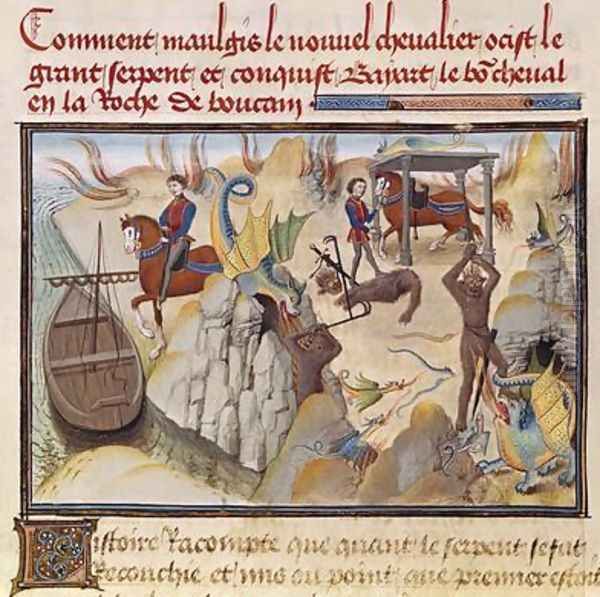 Comment maulgis le nouvel chevalier ocist le
grant serpent et conquist Baiart le bõ cheval
en la Roche de boucam
istoire Racompte que quant le serpent se fut
Recouchie et mis ou point que premier estoit